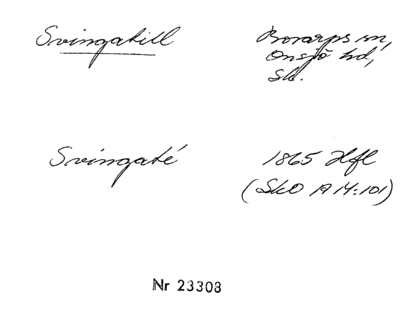 Svingatill
Borarps sn,
Onsjö hd,
Sk.
Svingaté
1865 Hfl
(SkO A 14:101)
Nr 23308